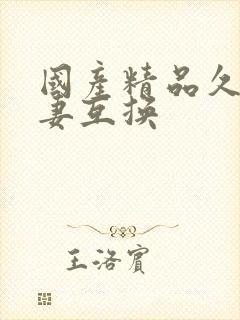 國產精品久
妻互換
王洛賓